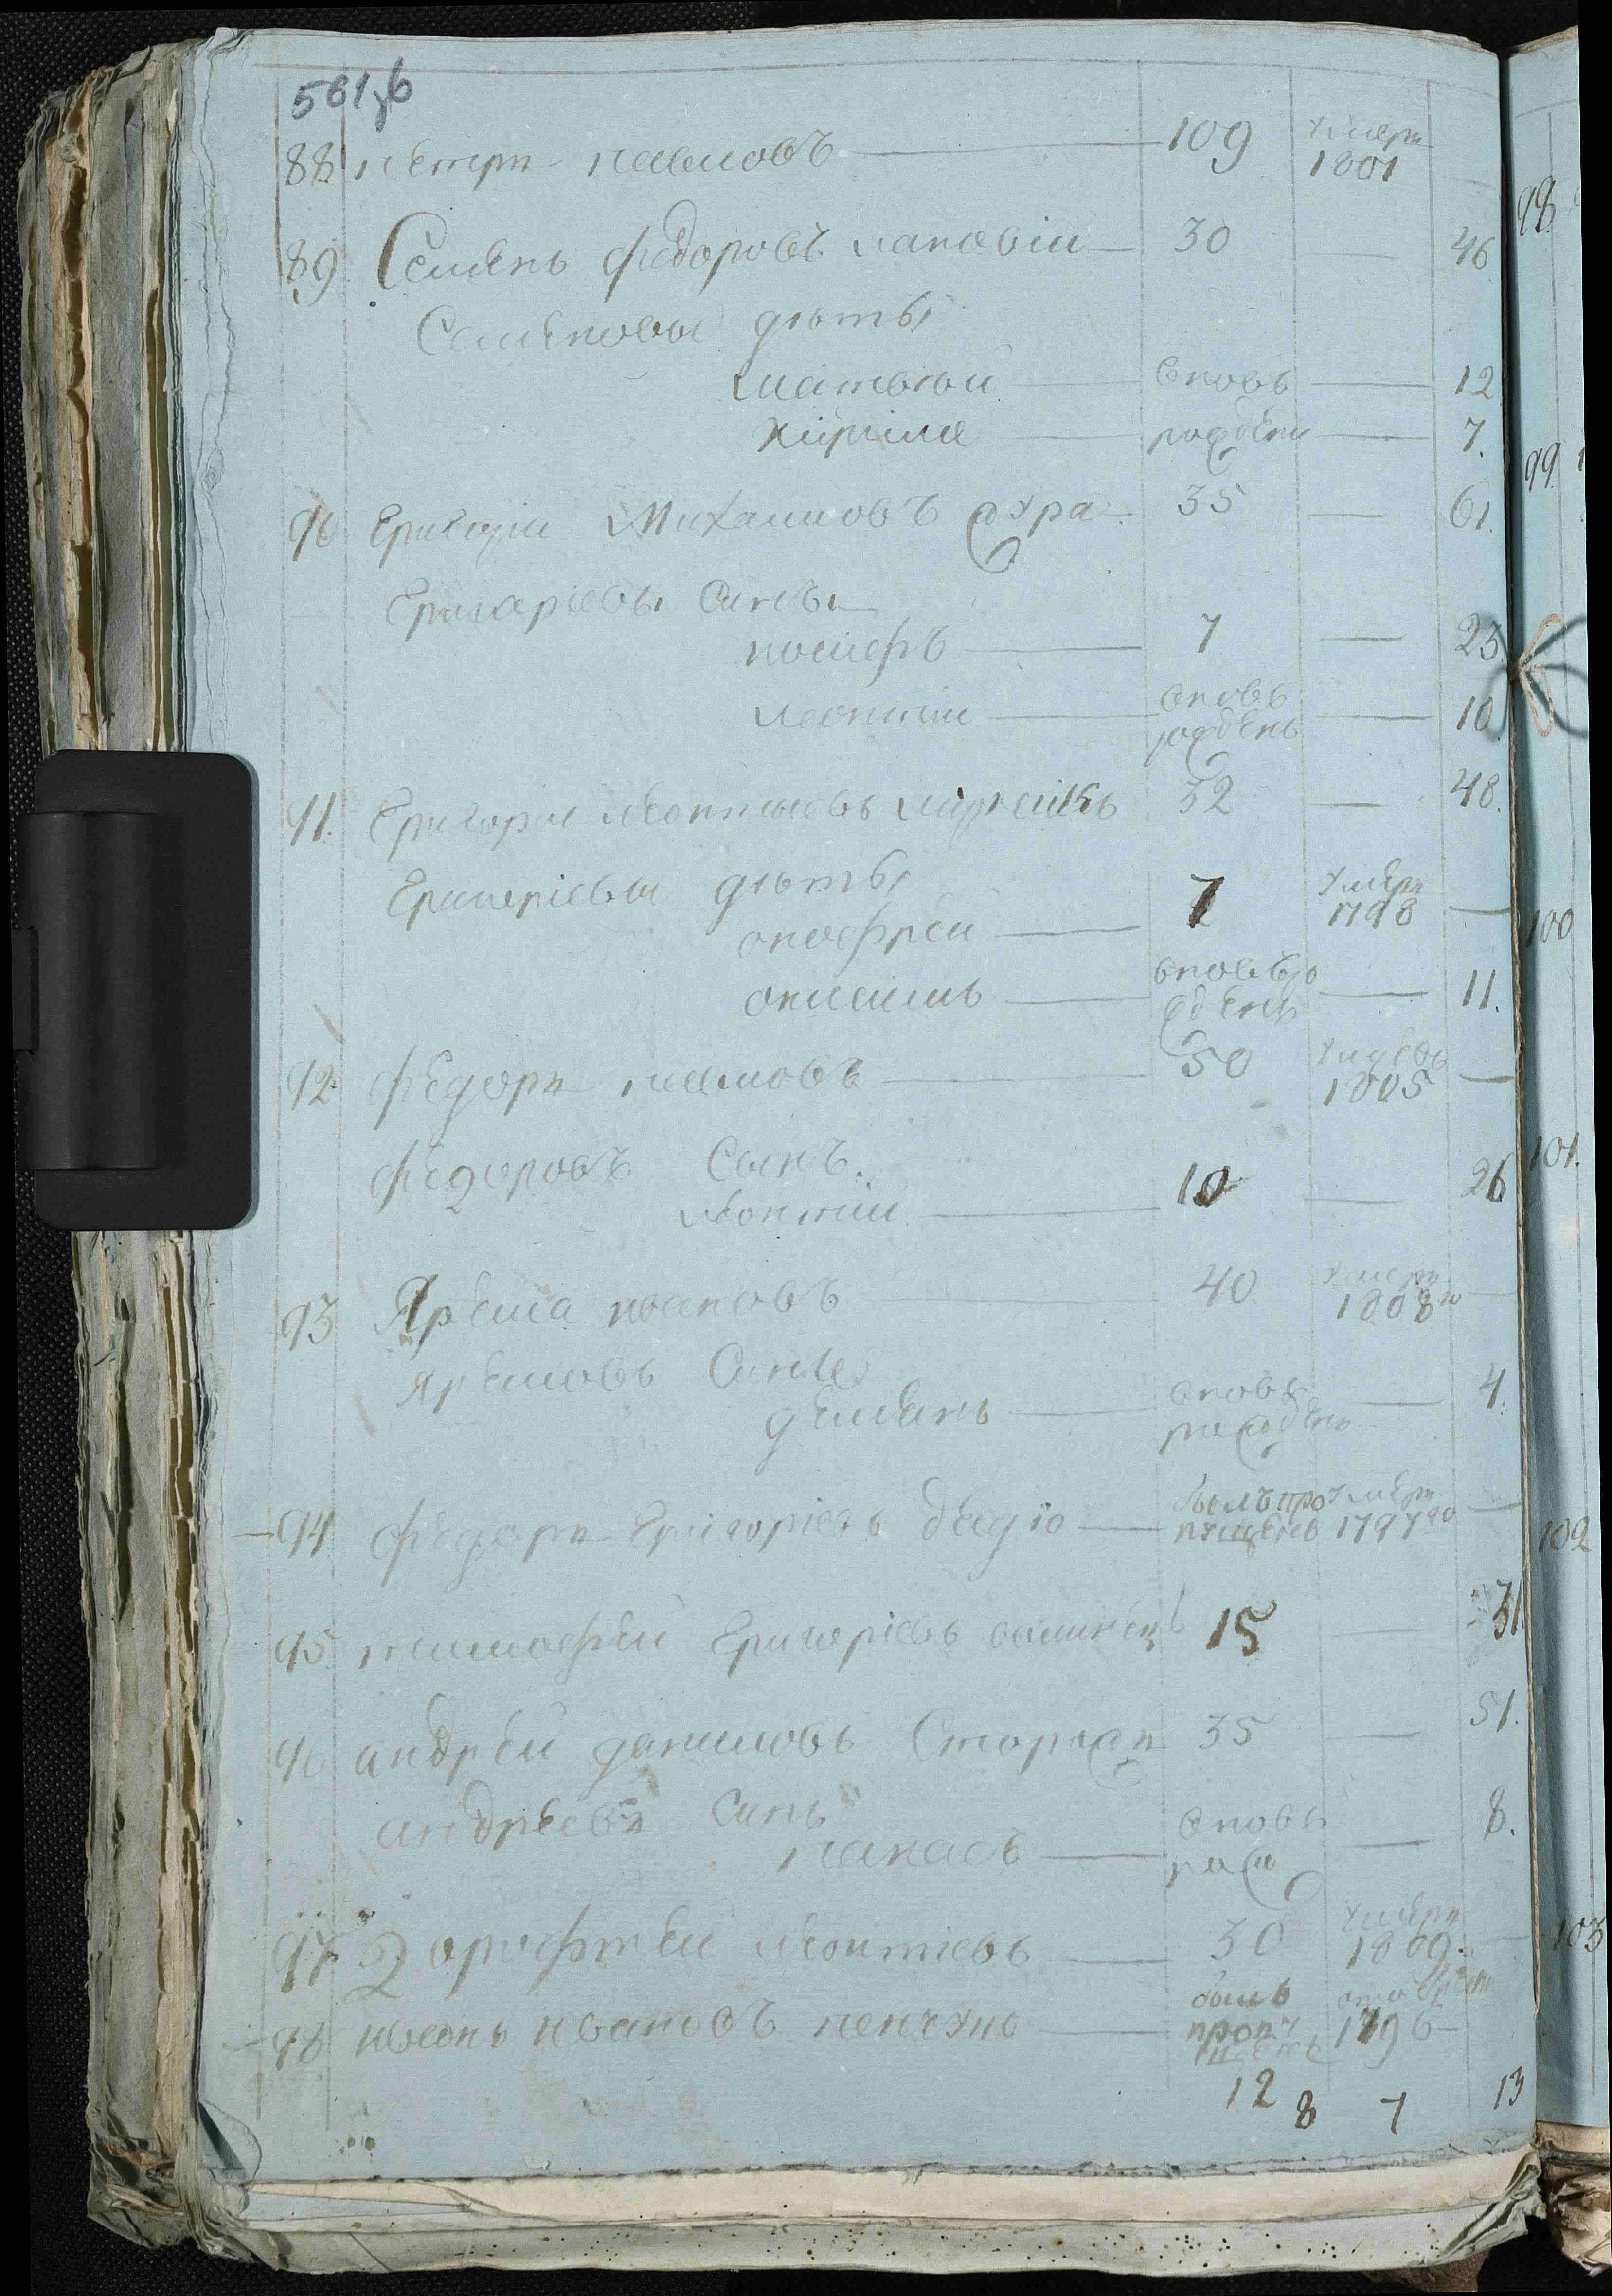 561зв
88 петръ павловъ 109 умеръ 1801
89 Семенъ федоровъ 30 46
Семеновы дѣты
матвѣй вновь 12
кирила рожденъ 7.
90 Григорій Михаиловъ охра 35 61.
Григоріевы Сины
иосифъ 7 25
леонтій вновь рожденъ 10
91. Григорій леонтьевъ 32 48.
Григоріевы дѣты
онофрей 7 умеръ 1798
онисимъ вновь ро жденъ 11.
92. федоръ павловъ 50 умеръ 1805
федоровъ Сынъ.
леонтій 10 26
93 Ярема ивановъ 40 умеръ 1808го
яремовъ Синъ
демянъ вновь рожденъ 4.
94 федоръ Григоріевъ дедю былъ про пущенъ умеръ 1797го
95 тимофей Григоріевъ волинецъ 15 31
96 андрей даниловъ Сторожъ 35 51.
андреевъ Синъ
панасъ вновь рож 8.
97 Дорофтей леонтіевъ 30 умеръ 1809.
98 иванъ ивановъ былъ пропу щенъ 1796
12 8 7 13
98
99
100
101.
102
103